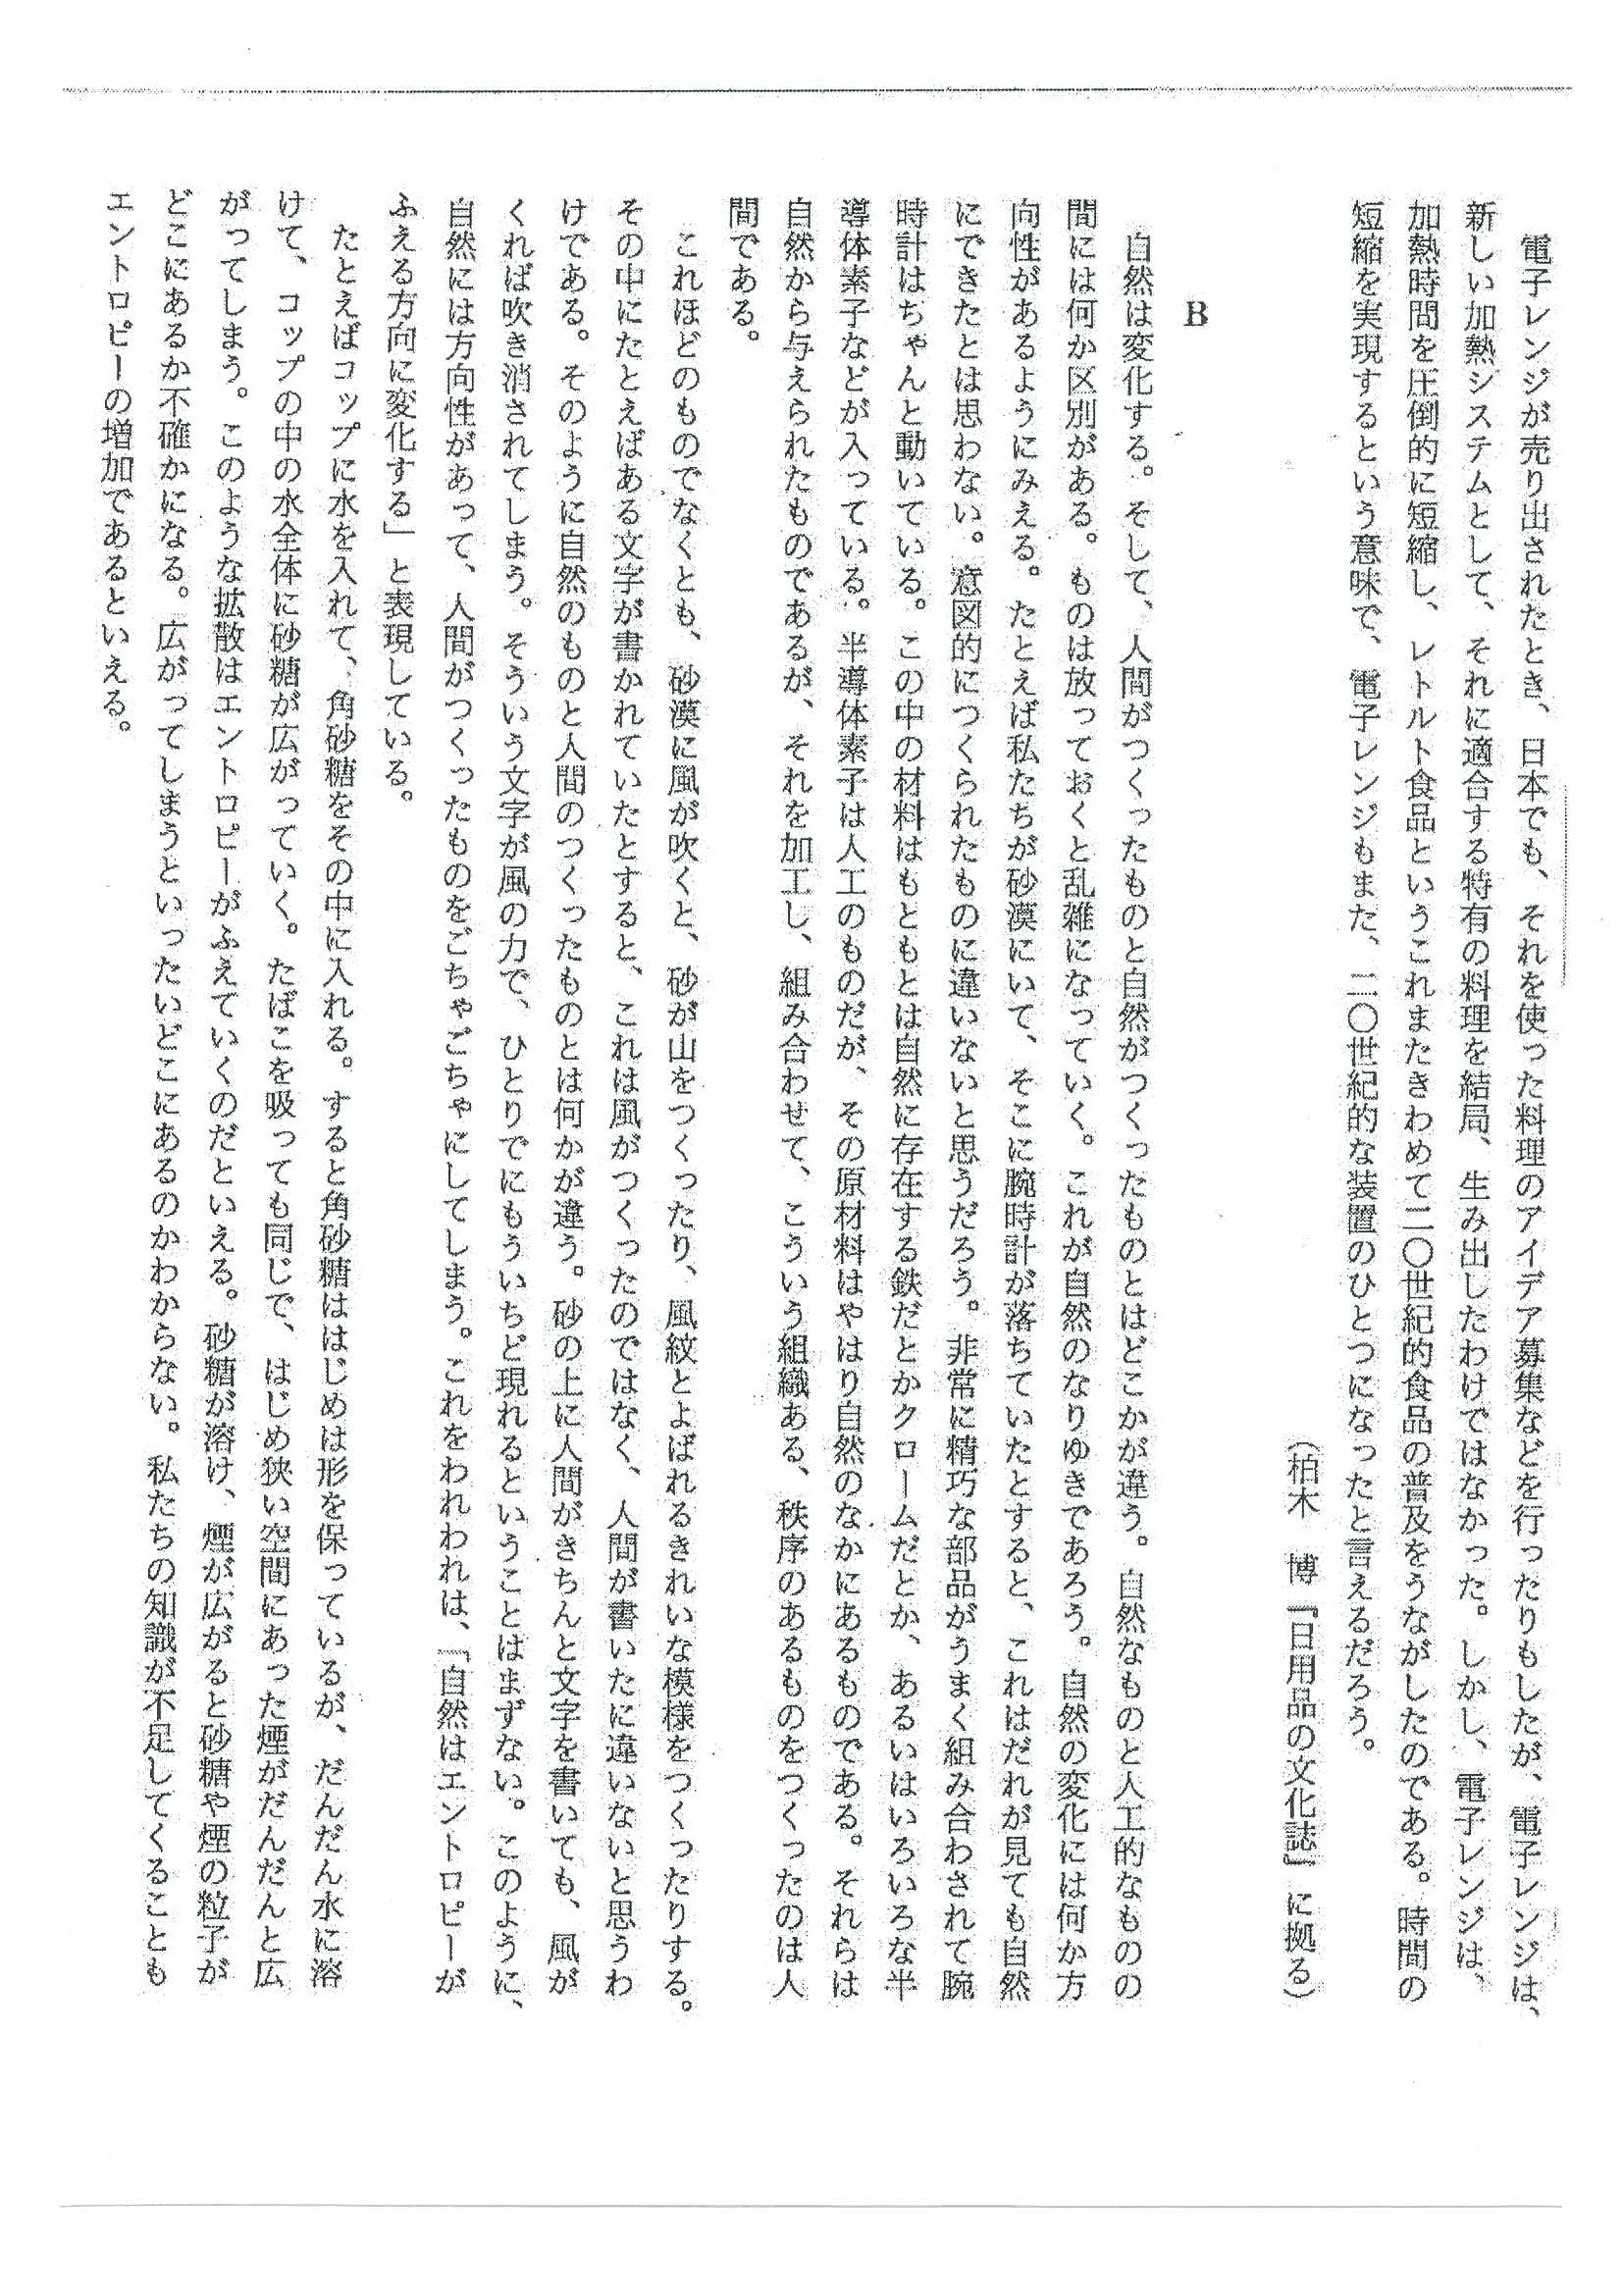 電子レンジが売り出されたとき、日本でも、それを使った料理のアイデア募集などを行ったりもしたが、電子レンジは、
新しい加熱システムとして、それに適合する特有の料理を結局、生み出したわけではなかった。しかし、電子レンジは、
加熱時間を圧倒的に短縮し、レトルト食品というこれまたきわめて二〇世紀的食品の普及をうながしたのである。時間の
短縮を実現するという意味で、電子レンジもまた、二〇世紀的な装置のひとつになったと言えるだろう。
（柏木　博『日用品の文化誌』に拠る）
B
自然は変化する。そして、人間がつくったものと自然がつくったものとはどこかが違う。自然なものと人工的なものの
間には何か区別がある。ものは放っておくと乱雑になっていく。これが自然のなりゆきであろう。自然の変化には何か方
向性があるようにみえる。たとえば私たちが砂漠にいて、そこに腕時計が落ちていたとすると、これはだれが見ても自然
にできたとは思わない。意図的につくられたものに違いないと思うだろう。非常に精巧な部品がうまく組み合わされて腕
時計はちゃんと動いている。この中の材料はもともとは自然に存在する鉄だとかクロームだとか、あるいはいろいろな半
導体素子などが入っている。半導体素子は人工のものだが、その原材料はやはり自然のなかにあるものである。それらは
自然から与えられたものであるが、それを加工し、組み合わせて、こういう組織ある、秩序のあるものをつくったのは人
間である。
これほどのものでなくとも、砂漠に風が吹くと、砂が山をつくったり、風紋とよばれるきれいな模様をつくったりする。
その中にたとえばある文字が書かれていたとすると、これは風がつくったのではなく、人間が書いたに違いないと思うわ
けである。そのように自然のものと人間のつくったものとは何かが違う。砂の上に人間がきちんと文字を書いても、風が
くれば吹き消されてしまう。そういう文字が風の力で、ひとりでにもういちど現れるということはまずない。このように、
自然には方向性があって、人間がつくったものをごちゃごちゃにしてしまう。これをわれわれは、「自然はエントロピーが
ふえる方向に変化する」と表現している。
たとえばコップに水を入れて、角砂糖をその中に入れる。すると角砂糖ははじめは形を保っているが、だんだん水に溶
けて、コップの中の水全体に砂糖が広がっていく。たばこを吸っても同じで、はじめ狭い空間にあった煙がだんだんと広
がってしまう。このような拡散はエントロピーがふえていくのだといえる。砂糖が溶け、煙が広がると砂糖や煙の粒子が
どこにあるか不確かになる。広がってしまうといったいどこにあるのかわからない。私たちの知識が不足してくることも
エントロピーの増加であるといえる。